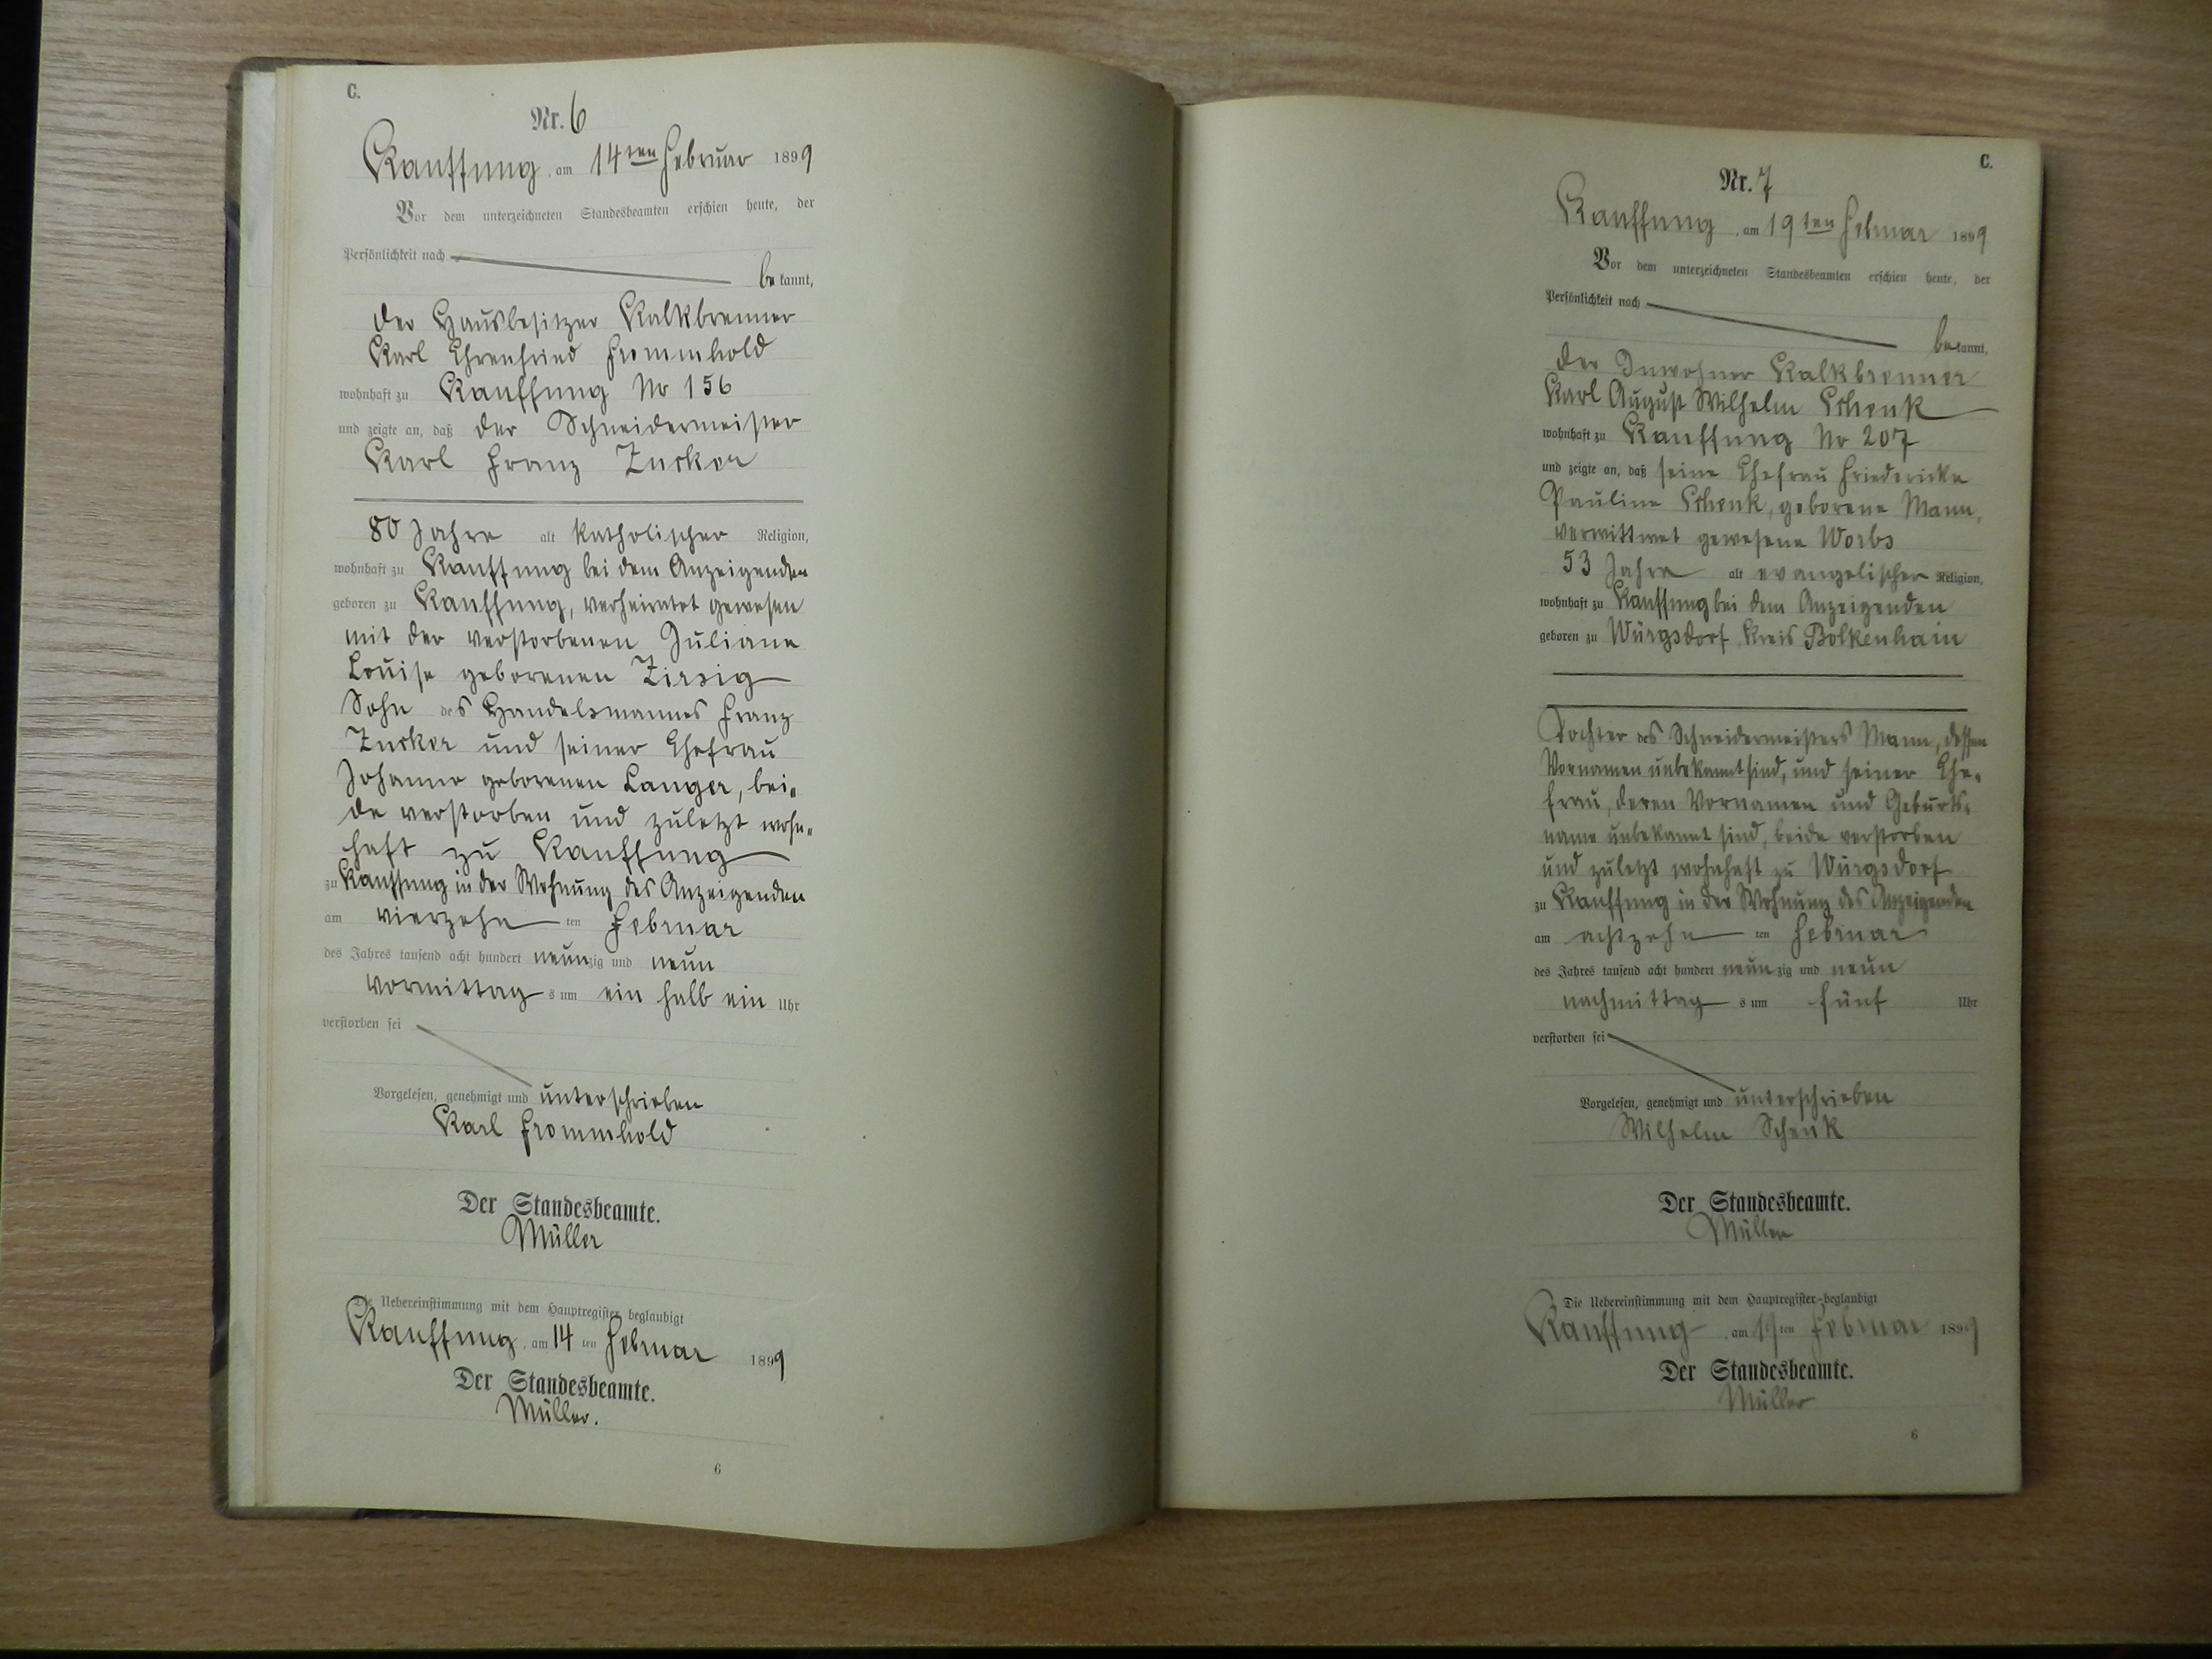 C.
Nr. 6
Kauffung, am 14ten Februar 1899
Vor dem unterzeichneten Standesbeamten erschien heute, der
Persönlichkeit nach
bekannt,
der Hausbesitzer Kalkbrenner
Karl Ehrenfried Frommhold
wohnhaft zu Kauffung No 156
und zeigte an, daß der Schneidermeister
Karl Franz Zucker
80 Jahre alt katholischer Religion,
wohnhaft zu Kauffung bei dem Anzeigenden
geboren zu Kauffung, verheiratet gewesen
mit der verstorbenen Juliane
Louise geborenen Zirsig
Sohn des Handelsmannes Franz
Zucker und seiner Ehefrau
Johanne geborenen Langer, bei-
de verstorben und zuletzt wohn-
haft zu Kauffung
zu Kauffung in der Wohnung des Anzeigenden
am vierzehnten Februar
des Jahres tausend acht hundert neunzig und neun
vormittags um ein halb ein Uhr
verstorben sei
Vorgelesen, genehmigt und unterschrieben
Karl Frommhold
Der Standesbeamte.
Müller
Die Uebereinstimmung mit dem Hauptregister beglaubigt
Kauffung, am 14ten Februar 1899
Der Standesbeamte.
Müller.
6
C.
Nr. 7
Kauffung, am 19ten Februar 1899
Vor dem unterzeichneten Standesbeamten erschien heute, der
Persönlichkeit nach
bekannt,
der Inwohner Kalkbrenner
Karl August Wilhelm Schenk
wohnhaft zu Kauffung No 207
und zeigte an, daß seine Ehefrau Friedericke
Pauline Schenk, geborene Mann,
verwittwet gewesene Worbs
53 Jahre alt evangelischer Religion,
wohnhaft zu Kauffung bei dem Anzeigenden
geboren zu Würgsdorf, Kreis Bolkenhain
Tochter des Schneidermeisters Mann, dessen
Vornamen unbekannt sind, und seiner Ehe-
frau, deren Vornamen und Geburts-
name unbekannt sind, beide verstorben
und zuletzt wohnhaft zu Würgsdorf
zu Kauffung in der Wohnung des Anzeigenden
am achtzehnten Februar
des Jahres tausend acht hundert neunzig und neun
nachmittags um fünf Uhr
verstorben sei
Vorgelesen, genehmigt und unterschrieben
Wilhelm Schenk
Der Standesbeamte.
Müller
Die Uebereinstimmung mit dem Hauptregister beglaubigt
Kauffung, am 19ten Februar 1899
Der Standesbeamte.
Müller
6